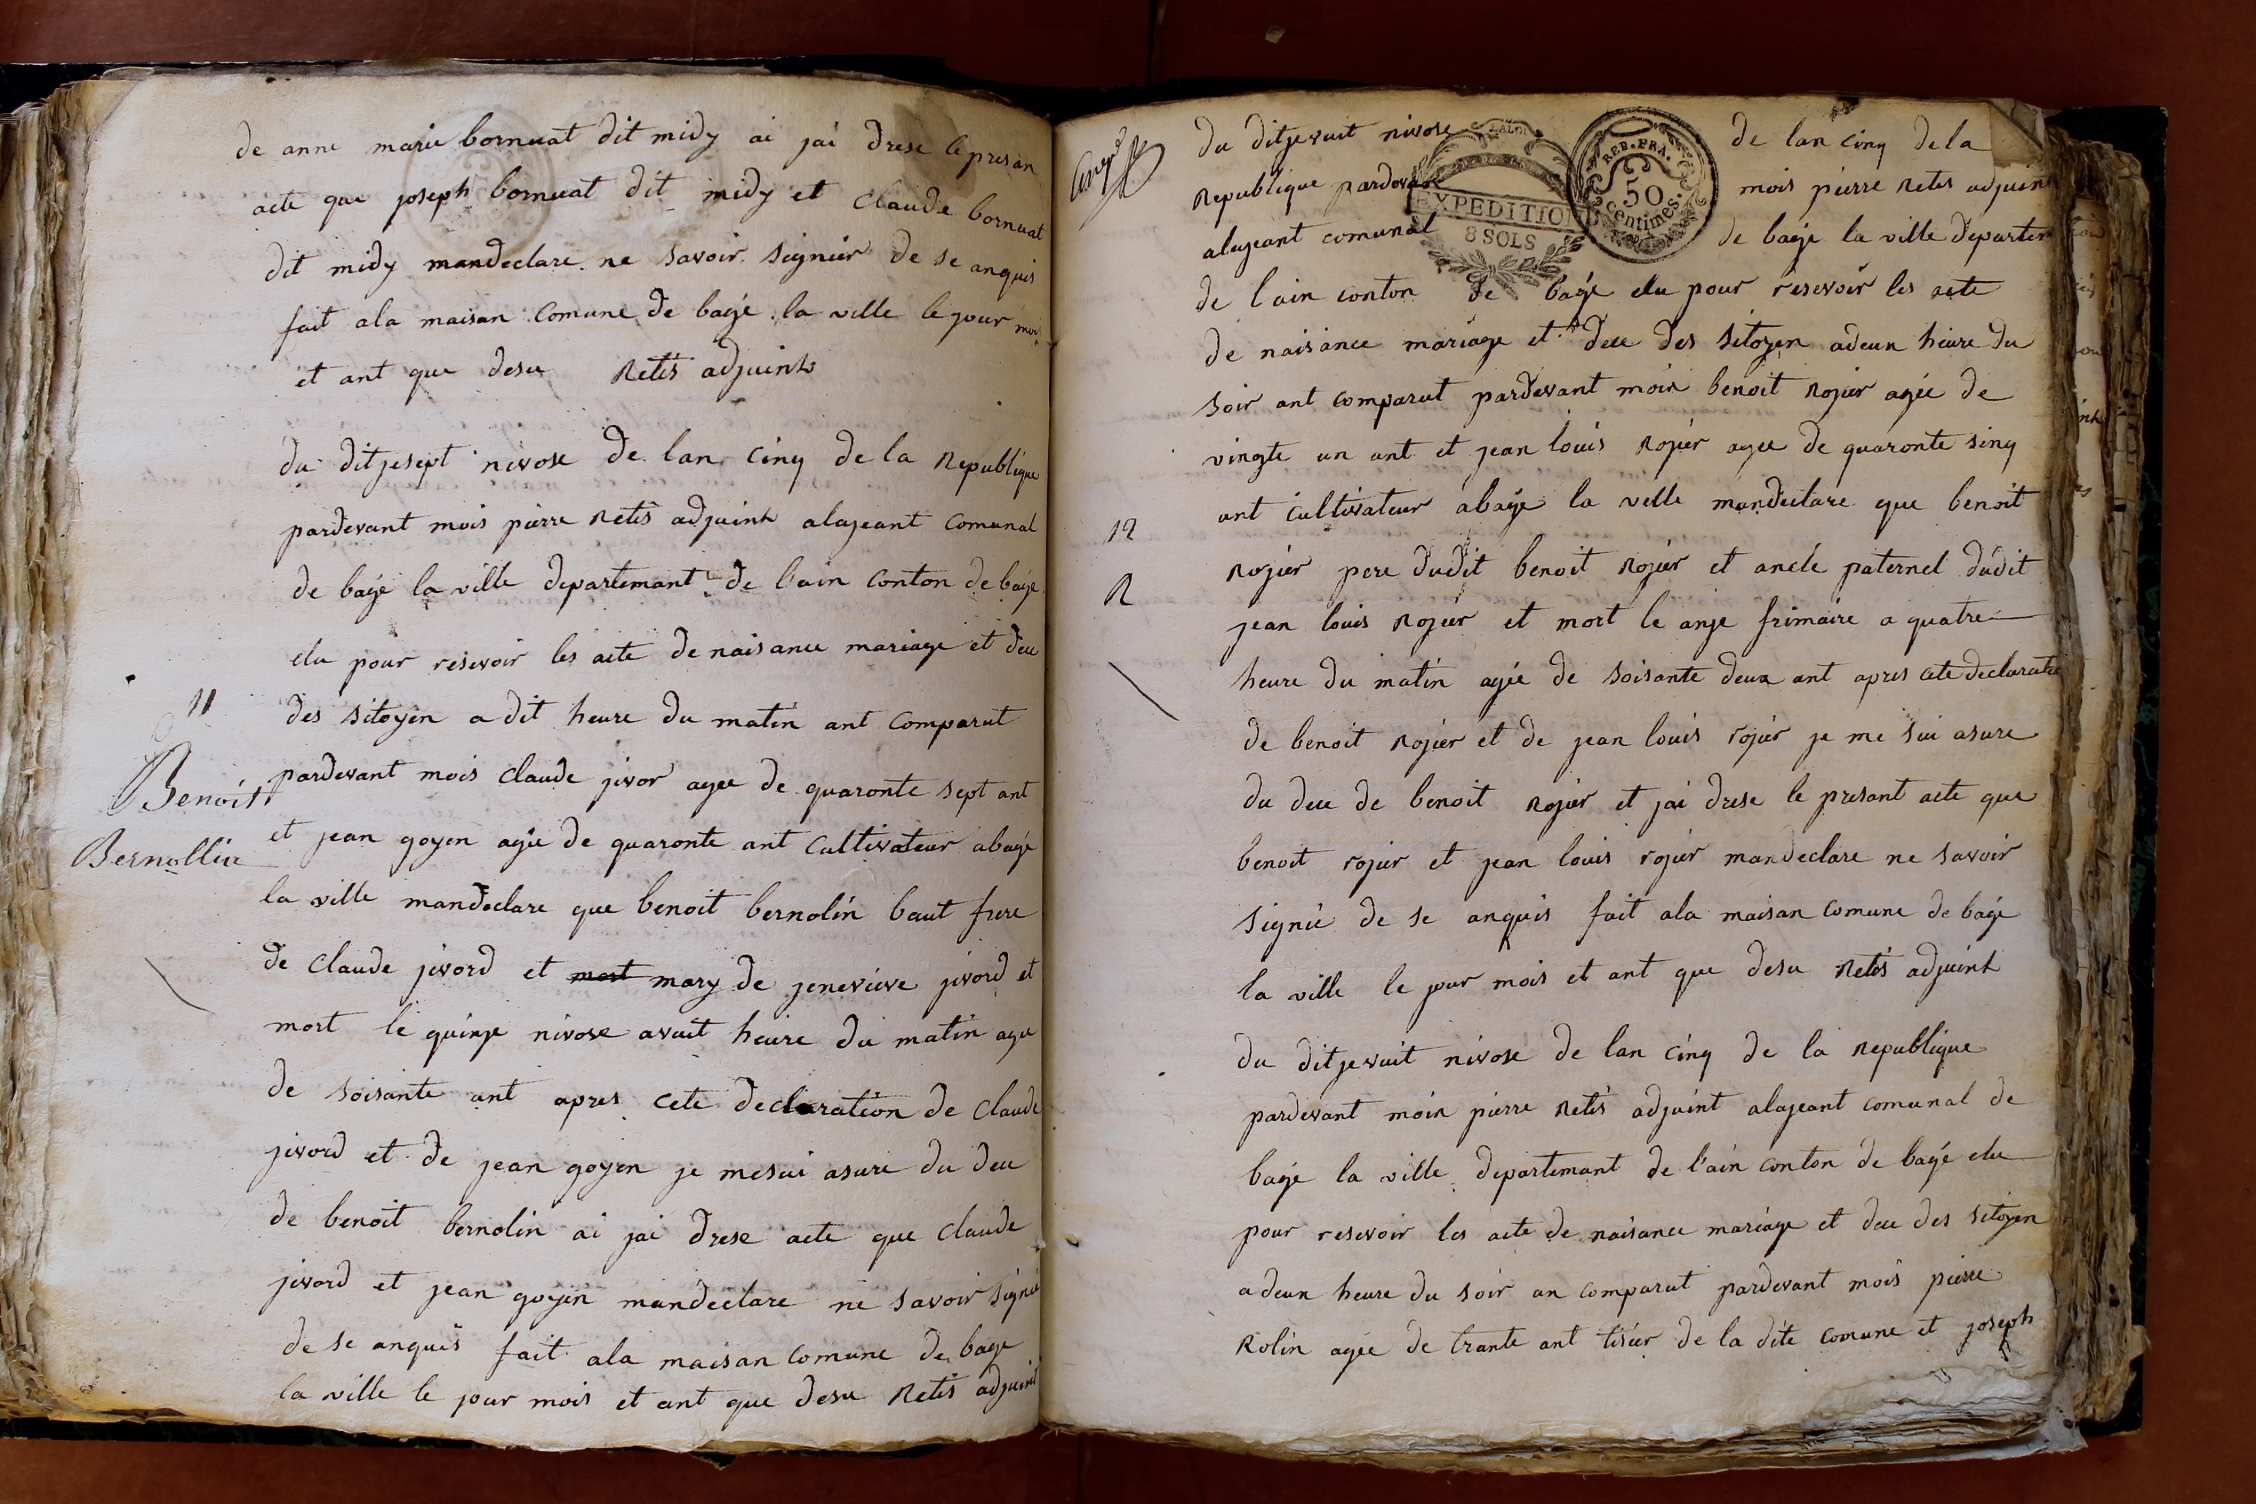 de anne marie bornuat dit midy ai jai drese le presan
acte que joseph bornuat dit midy et Claude bornuat
dit midy mandeclare ne savoir signier de se anquis
fait ala maisan Comune de bagé la ville le jour moi
et ant que desu Retis adjuint
du ditjesept nivose de lan Cinq de la Republique
pardevant mois pierre Retis adjuint alajeant Comunal
de bagé la ville departemant de lain Conton de bage
elu pour resevoir les acte de naisance mariage et deu
11
des sitoyen a dit heure du matin ant Comparut
Benoit
pardevant mois Claude jivor agee de quaronte sept ant
Bernollin
et jean goyon agée de quaronte ant Cultivateur abagé
la ville mandeclare que benoit bernolin baut frere
de Claude jivord et mort mary de jenevieve jivord et
mort le quinje nivose avuit heure du matin agee
de soisante ant apres cete declaration de Claude
jivord et de jean goyon je mesui asure du deu
de benoit bernolin ai jai drese acte que Claude
jivord et jean goyon mandeclare ne savoir signié
de se anquis fait ala maisan Comune de bage
la ville le jour mois et ant que desu Retis adjuint
du ditjevuit nivose de lan cinq de la
Republique pardevant mois pierre Retis adjuint
alajeant comunal de baje la ville departem
EXPEDITION
8 SOLS
REP. FRA.
50
centimes.
de lain conton de bagé elu pour resevoir les acte
de naisance mariage et deu des sitoyen adeux heure du
soir ant comparut pardevant moix benoit Rojier agée de
vingte un ant et jean louis Rojier agee de quaronte sinq
12
ant cultivateur abagé la velle mandeclare que benoit
R
Rojier pere dudit benoit Rojier et oncle paternel dudit
jean louis Rojier et mort le onje frimaire a quatre
heure du matin agée de soisante deux ant apres cete declaratio
de benoit Rojier et de jean louis rojier je me sui asure
du deu de benoit Rojier et jai drese le presant acte que
benoit rojier et jean louis rojier mandeclare ne savoir
signié de se anquis fait ala maisan comune de bagé
la ville le jour mois et ant que desu Retis adjuint
du ditjevuit nivose de lan cinq de la Republique
pardevant moix pierre Retis adjuint alajeant comunal de
bagé la ville departemant de l'ain conton de bagé elu
pour resevoir les acte de naisance mariage et deu des sitoyen
adeux heure du soir an comparut pardevant mois pierre
Rolin agée de trante ant tisier de la dite comune et joseph